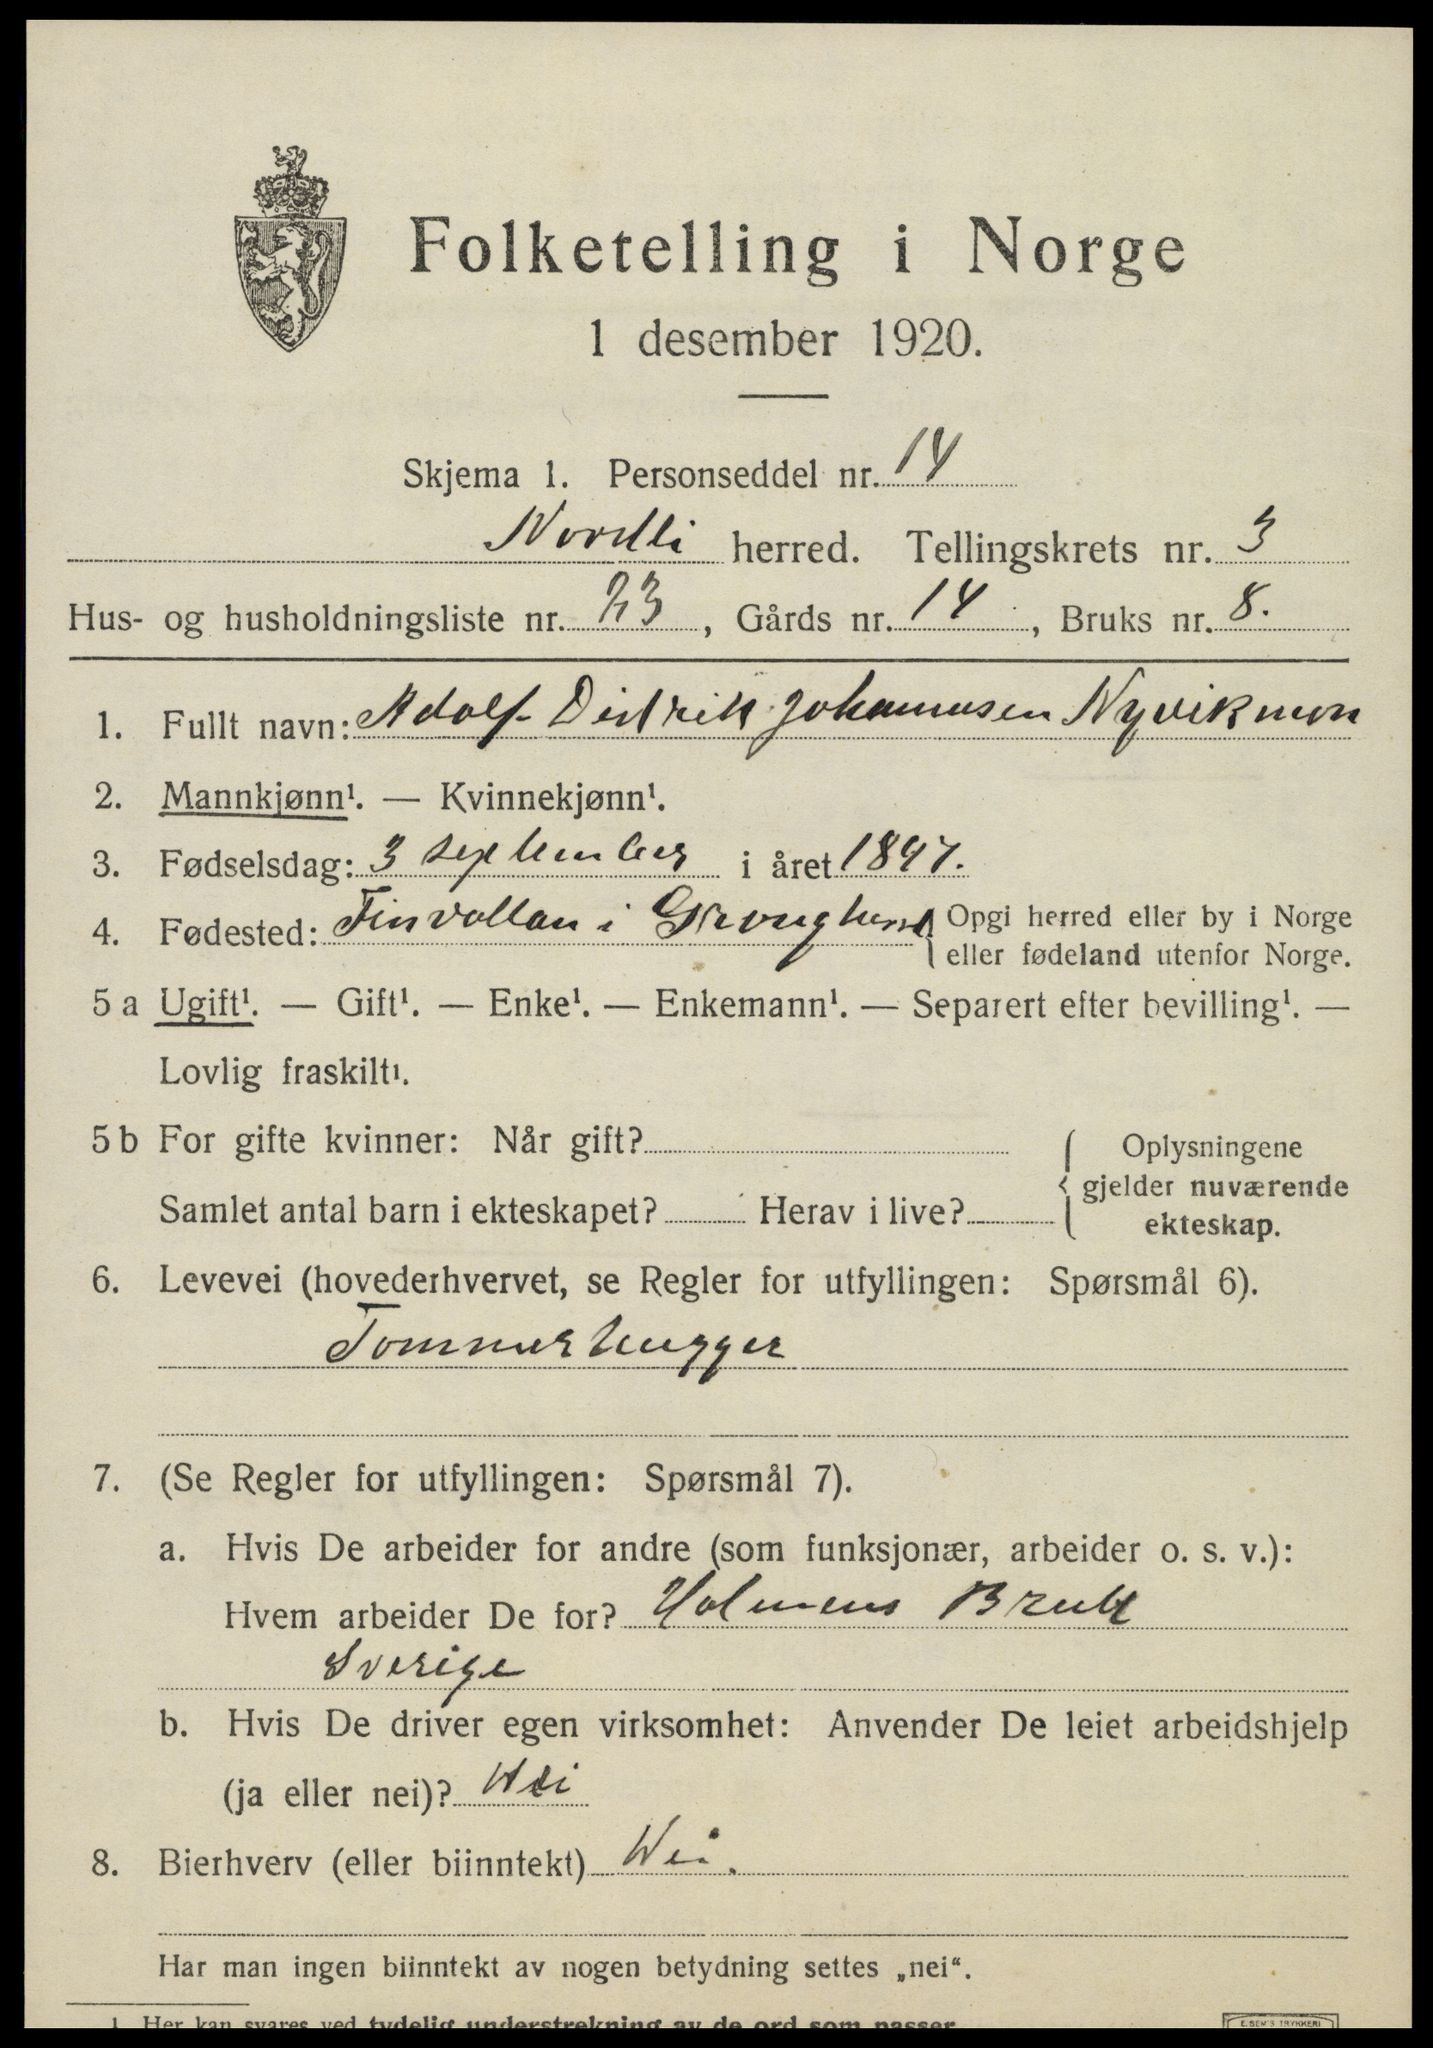 Folketelling i Norge
1 desember 1920.
Skjema 1. Personseddel nr. 14
Nordli herred. Tellingskrets nr. 3
Hus- og husholdningsliste nr. 23, Gårds nr. 14, Bruks nr. 8.
1. Fullt navn: Adolf Didrik Johannusen Nyvikmon
2. Mannkjønn¹. — Kvinnekjønn¹.
3. Fødselsdag: 3 september i året 1897.
4. Fødested: Finvollan i { Opgi herred eller by i Norge
eller fødeland utenfor Norge.
5 a Ugift¹. — Gift¹. — Enke¹. — Enkemann¹. — Separert efter bevilling¹. —
Lovlig fraskilt¹.
5 b For gifte kvinner: Når gift? { Oplysningene
gjelder nuværende
Samlet antal barn i ekteskapet? Herav i live?
ekteskap.
6. Levevei (hovederhvervet, se Regler for utfyllingen: Spørsmål 6).
Tommerhugger
7. (Se Regler for utfyllingen: Spørsmål 7).
a. Hvis De arbeider for andre (som funksjonær, arbeider o. s. v.):
Hvem arbeider De for? Holmens Bruk
Sverige
b. Hvis De driver egen virksomhet: Anvender De leiet arbeidshjelp
(ja eller nei)? Nei
8. Bierhverv (eller biinntekt) Nei.
Har man ingen biinntekt av nogen betydning settes „nei“.
1 Her kan svares ved tydelig understrekning av de ord som passer.
E. SEM'S TRYKKERI